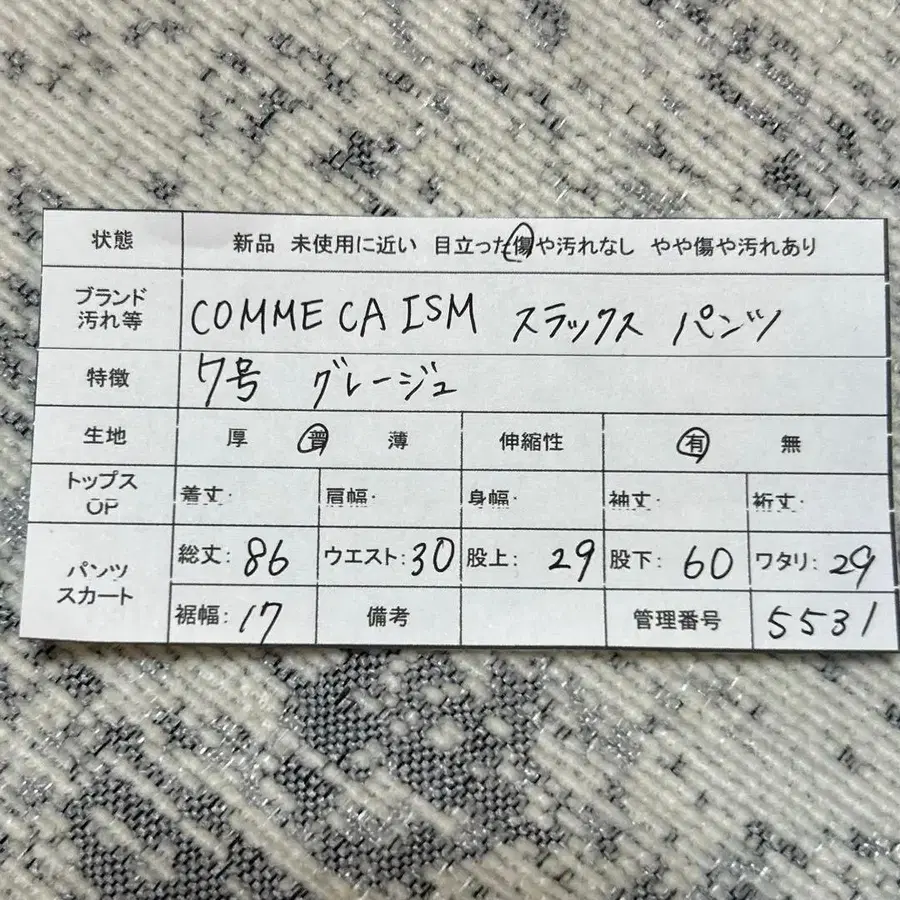 状態 新品 未使用に近い 目立った傷や汚れなし やや傷や汚れあり
ブランド 汚れ等 COMME CA ISM スラックス パンツ
特徴 7号 グレージュ
生地 厚 普 薄 伸縮性 有 無
トップス OP 着丈: 肩幅: 身幅: 袖丈: 裄丈:
パンツ スカート 総丈: 86 ウエスト: 30 股上: 29 股下: 60 ワタリ: 29
裾幅: 17 備考 管理番号 5531